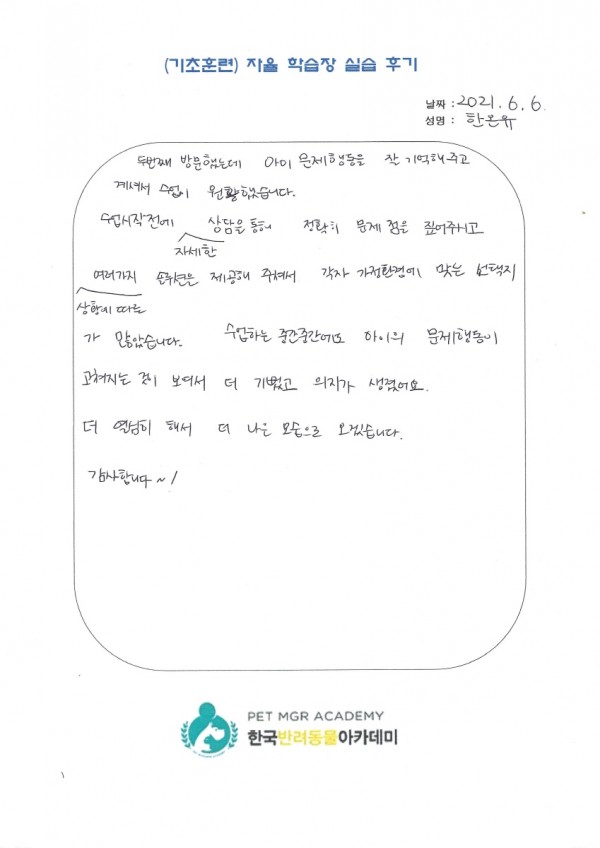 (기초훈련) 자율 학습장 실습 후기
날짜 : 2021. 6. 6.
성명 : 한온유
두번째 방문했는데 아이 문제행동을 잘 기억해주고
계셔서 수업이 원활했습니다.
수업시작전에 상담을 통해 정확히 문제점을 짚어주시고
자세한
여러가지 솔루션을 제공해 주셔서 각자 가정환경에 맞는 선택지
상황에 따른
가 많았습니다. 수업하는 중간중간에도 아이의 문제행동이
고쳐지는 것이 보여서 더 기뻤고 의지가 생겼어요.
더 열심히 해서 더 나은 모습으로 오겠습니다.
감사합니다~!
PET MGR ACADEMY
한국반려동물아카데미